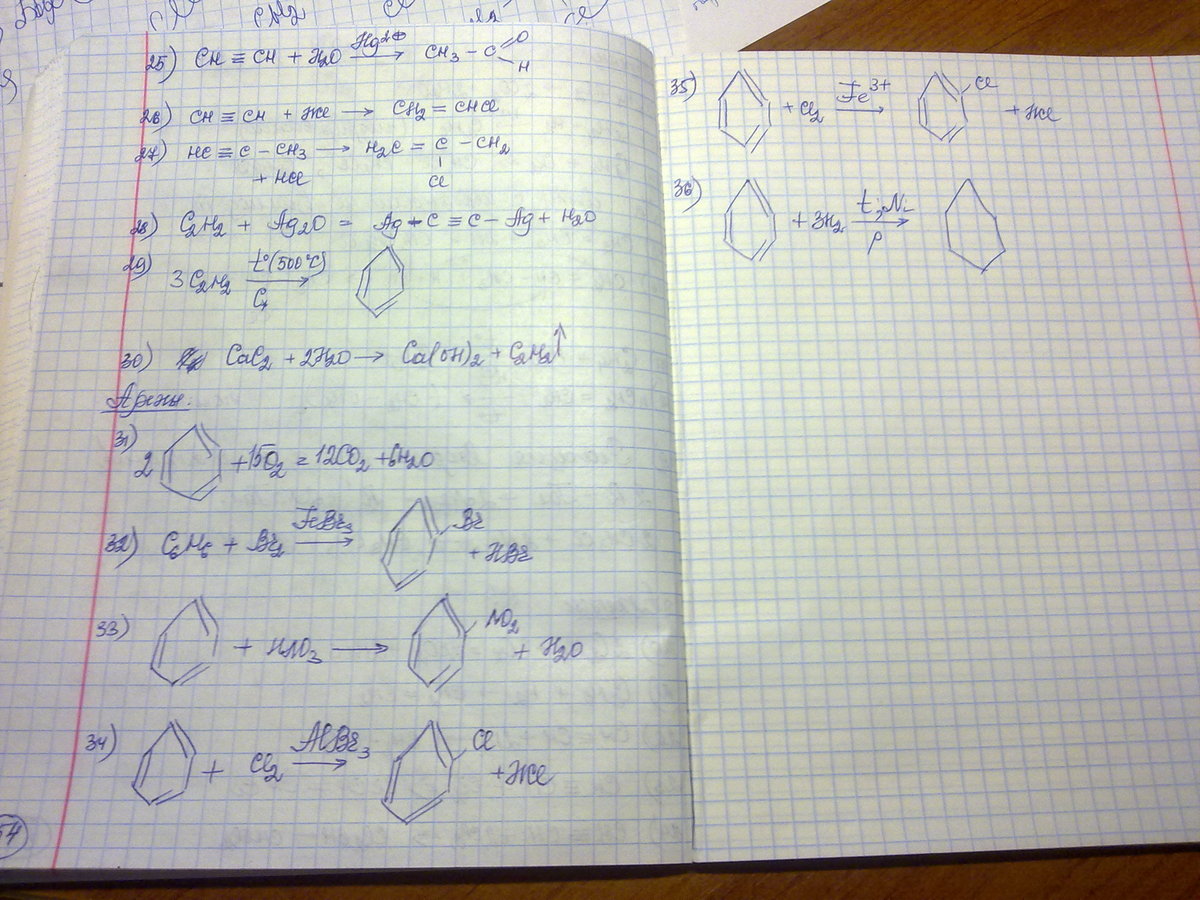 25) CH ≡ CH + H2O Hg2⊕ → CH3 - C O H
26) CH ≡ CH + HCl → CH2 = CHCl
27) HC ≡ C - CH3 → H2C = C - CH2
+ HCl Cl
28) C2H2 + Ag2O = Ag - C ≡ C - Ag + H2O
29) 3C2H2 t°(500°C) →
30) CaC2 + 2H2O → Ca(OH)2 + C2H2↑
Арены.
31) 2 + 15O2 = 12CO2 + 6H2O
32) C6H6 + Br2 FeBr3 → Br + HBr
33) + HNO3 → NO2 + H2O
34) + Cl2 AlBr3 → Cl + HCl
54
35) + Cl2 Fe3+ → Cl + HCl
36) + 3H2 t; Ni p →